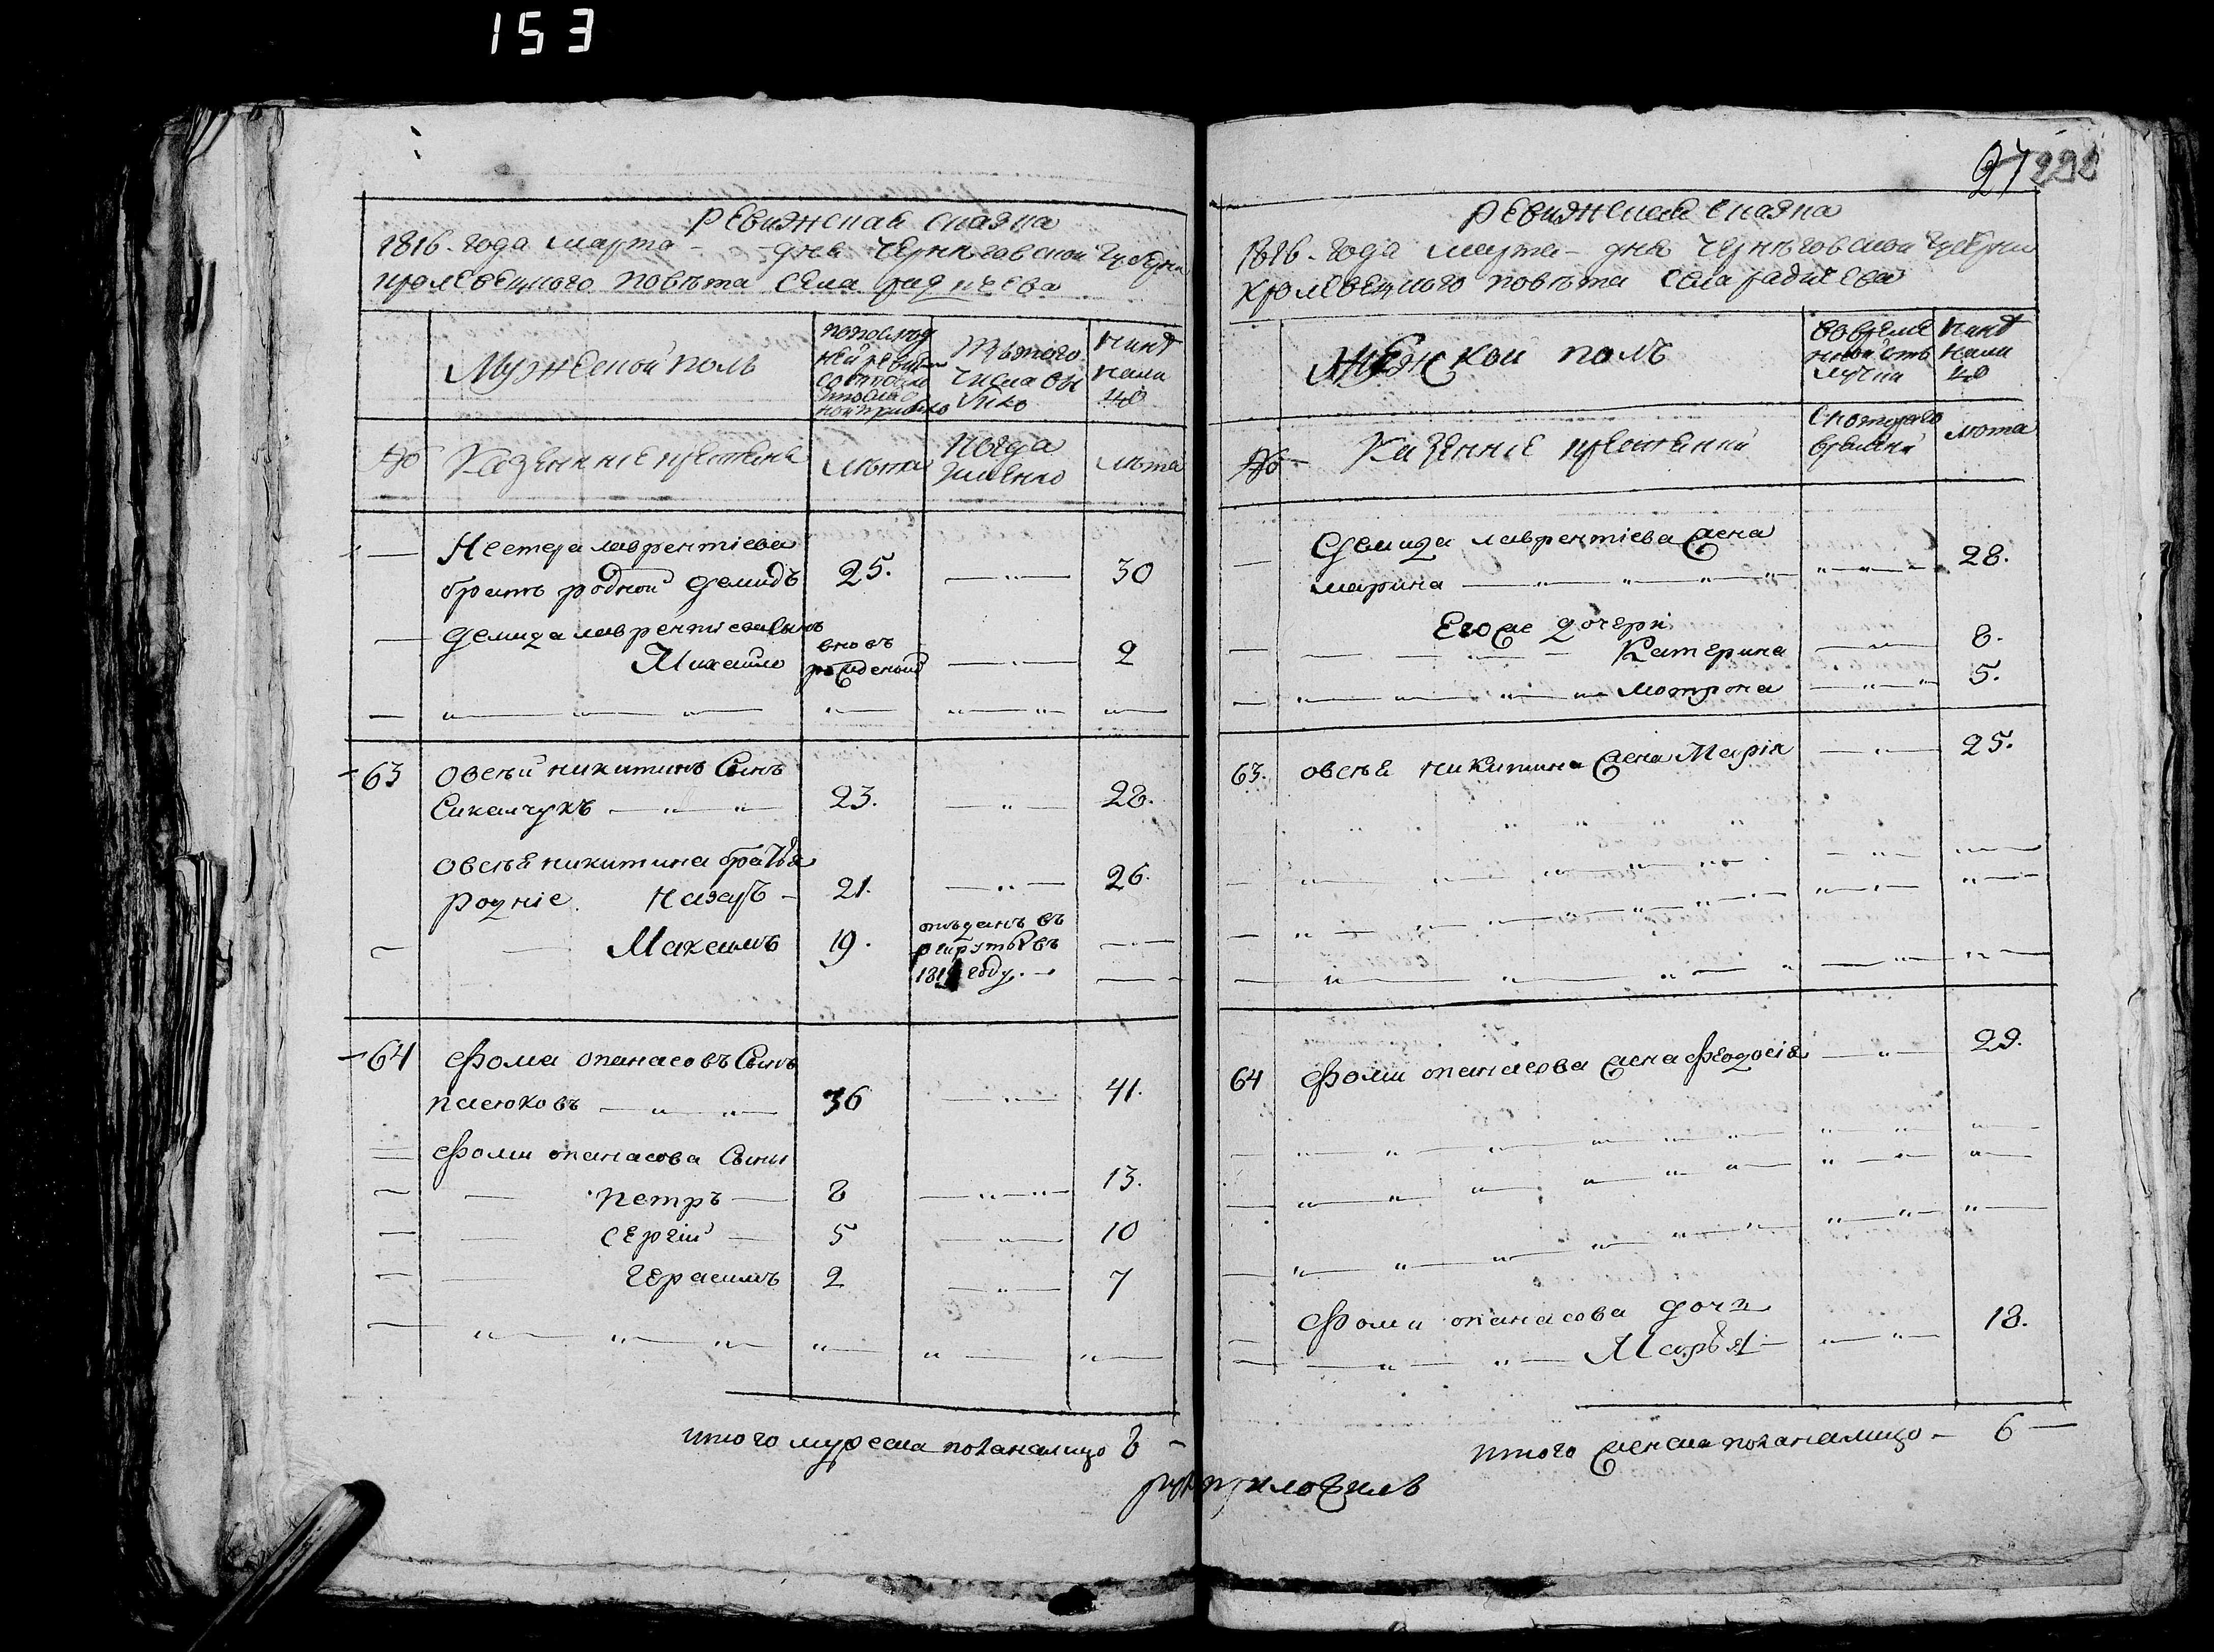 153
Ревижская сказка
1816. года марта - дня Черниговской Губерни
кролевецкого повѣта села радичева
Мужеской полъ
по послед
ней ревизи
состояло
и после
оной прибыло
Изътого
числа вы
было
нинѣ
нали
цо
№
Казенние крестяне
лѣта
когда
имѣнно
лѣта
Нестера лаврентіева
братъ родной Демидъ 25. 30
Демида лаврентіева сынъ
Михаило
вновъ
рожденый
2
63 овсѣй никитинъ Сынъ
Сикалчукъ 23. 28.
овсѣя никитина братя
родніе. Назаръ - 21. 26.
Максимъ 19.
отъданъ въ
рекруты въ
году.
64 Фома опанасовъ Сынъ
пасюковъ 36 41.
Фоми опанасова Сыны
петръ 8 13.
Сергій 5 10
Герасимъ 2 7
итого мужеска пола налицо 8
27 292
Ревижская Сказка
1816. года марта - дня Чернѣговской Губерни
Кролевецкого повѣта села радичева
Женской полъ
во врѣмѣ
ной отъ
лучки
нинѣ
нали
цо
№
Казенніе крестяний
С которого
врѣмѣни
лѣта
Демида лаврентіева жена
марина 28.
Его же дочери
Катерина 8.
мотрона 5.
63. овсѣя никитина жена Марія 25.
64 Фоми опанасова жена Феодосія 29.
Фоми опанасова дочъ
Марья 18.
итого женска пола налицо - 6
приложилъ